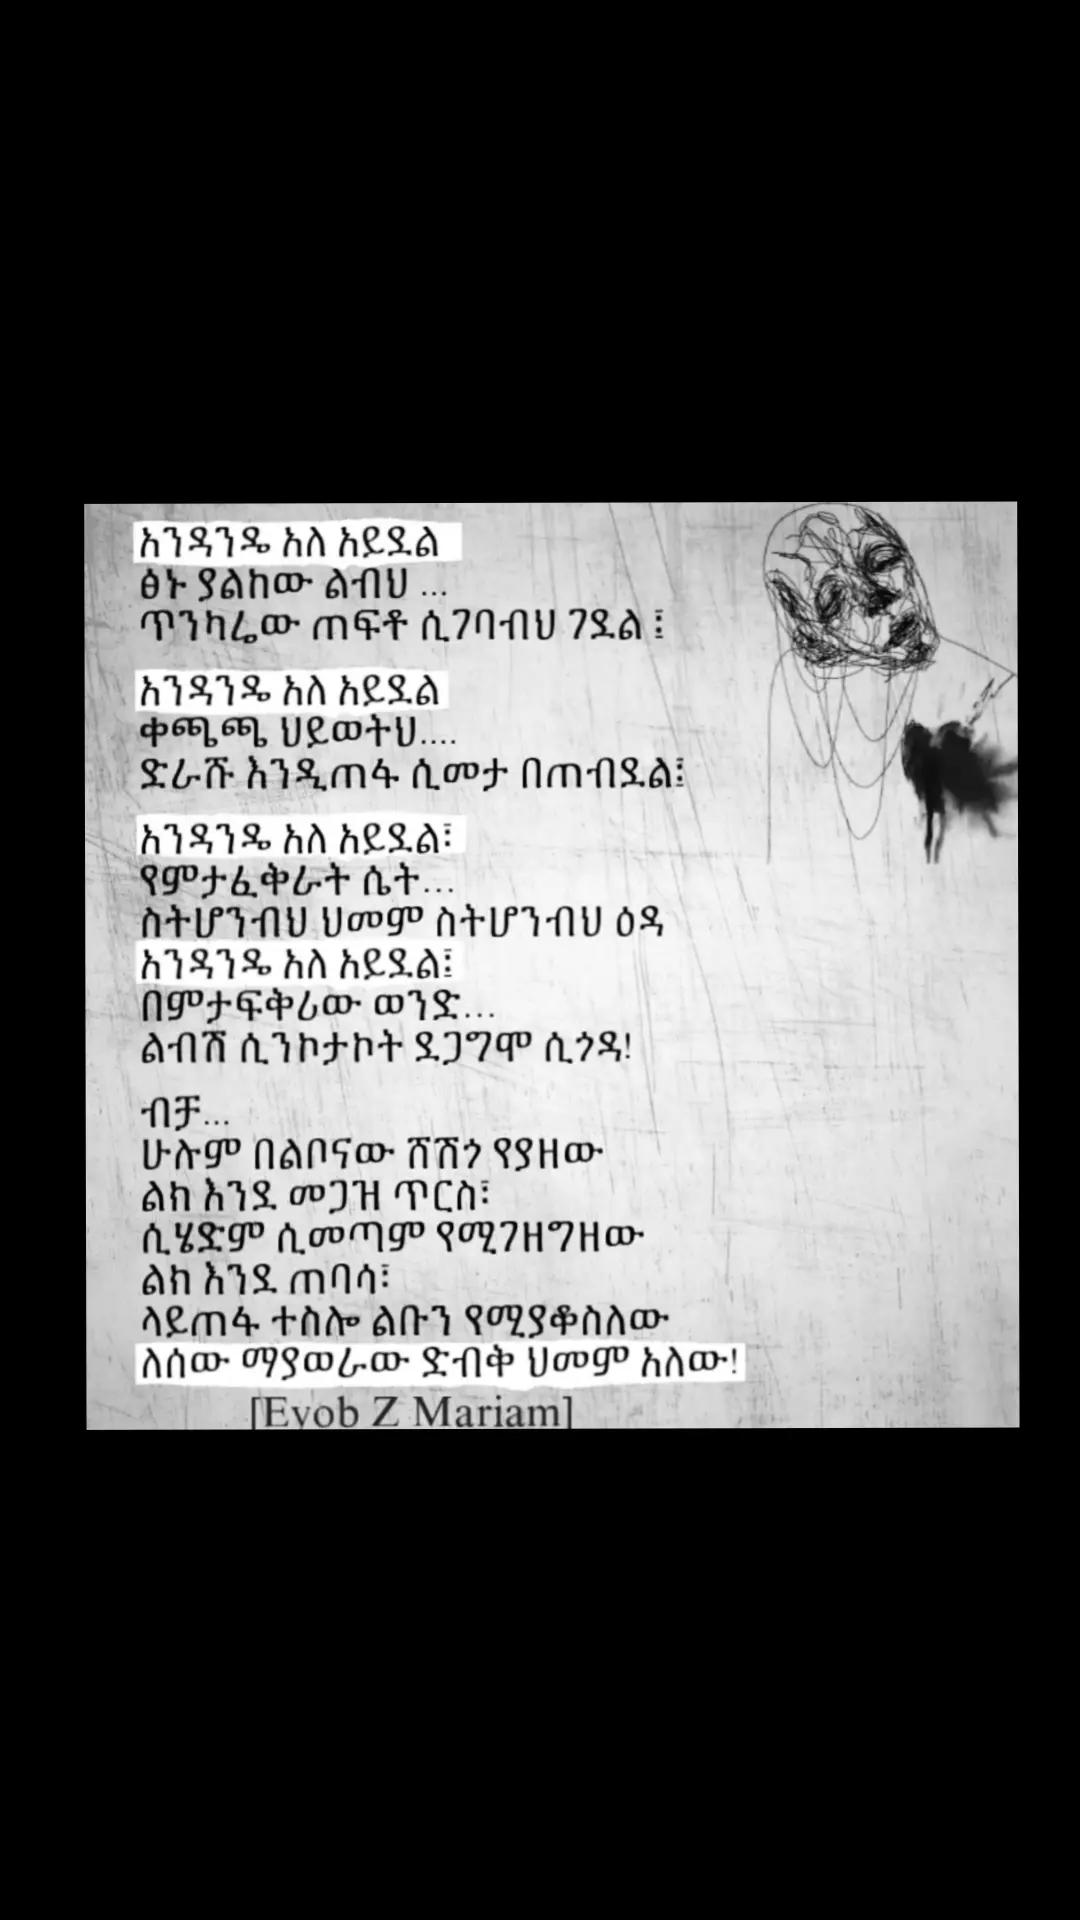 አንዳንዴ አለ አይደል
ፅኑ ያልከው ልብህ ...
ጥንካሬው ጠፍቶ ሲገባብህ ገደል ፤
አንዳንዴ አለ አይደል
ቀጫጫ ህይወትህ....
ድራሹ እንዲጠፋ ሲመታ በጠብደል፤
አንዳንዴ አለ አይደል፣
የምታፈቅራት ሴት...
ስትሆንብህ ህመም ስትሆንብህ ዕዳ
አንዳንዴ አለ አይደል፤
በምታፍቅሪው ወንድ...
ልብሽ ሲንኮታኮት ደጋግሞ ሲጎዳ!
ብቻ...
ሁሉም በልቦናው ሸሽጎ የያዘው
ልክ እንደ መጋዝ ጥርስ፣
ሲሄድም ሲመጣም የሚገዘግዘው
ልክ እንደ ጠባሳ፣
ላይጠፋ ተስሎ ልቡን የሚያቆስለው
ለሰው ማያወራው ድብቅ ህመም አለው!
[Eyob Z Mariam]